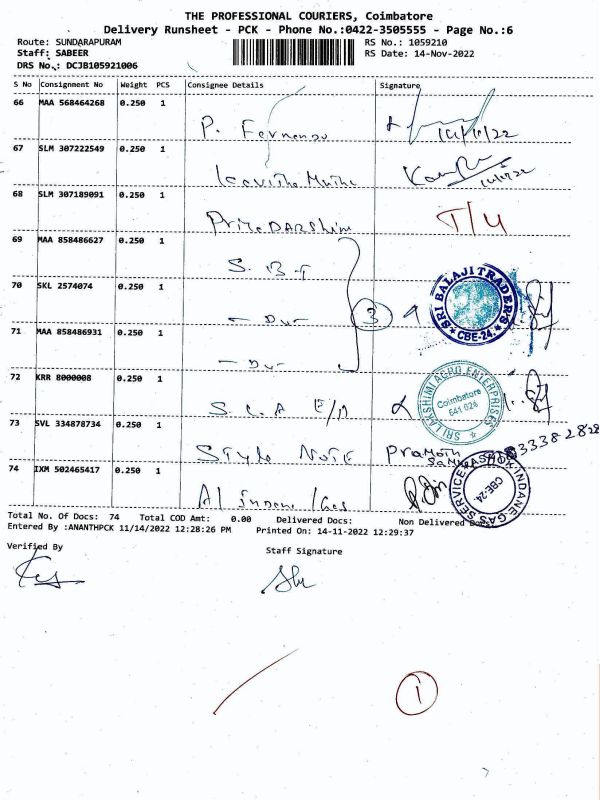 THE PROFESSIONAL COURIERS, Coimbatore
Delivery Runsheet - PCK - Phone No.:0422-3505555 - Page No.:6
Route: SUNDARAPURAM RS No.: 1059210
Staff: SABEER RS Date: 14-Nov-2022
DRS No.: DCJB105921006
S No Consignment No Weight PCS Consignee Details Signature
66 MAA 568464268 0.250 1
P. Fernando 14/11/22
67 SLM 307222549 0.250 1
68 SLM 307189091 0.250 1
PriyaDARShini
69 MAA 858486627 0.250 1
S. B T
70 SKL 2574074 0.250 1
3
SRI BALAJI TRADERS
* CBE-24. *
— Do —
71 MAA 858486931 0.250 1
— Do —
72 KRR 8000008 0.250 1
S. L. A E/P
SRI LAKSHMI AGRO ENTERPRISES
Coimbatore
641 024
73 SVL 334878734 0.250 1
Style Note Pramoth
74 IXM 502465417 0.250 1
Al Indane Gas
INDANE GAS SERVICE
CBE-24.
Total No. Of Docs: 74 Total COD Amt: 0.00 Delivered Docs: Non Delivered Docs:
Entered By :ANANTHPCK 11/14/2022 12:28:26 PM Printed On: 14-11-2022 12:29:37
Verified By Staff Signature
1